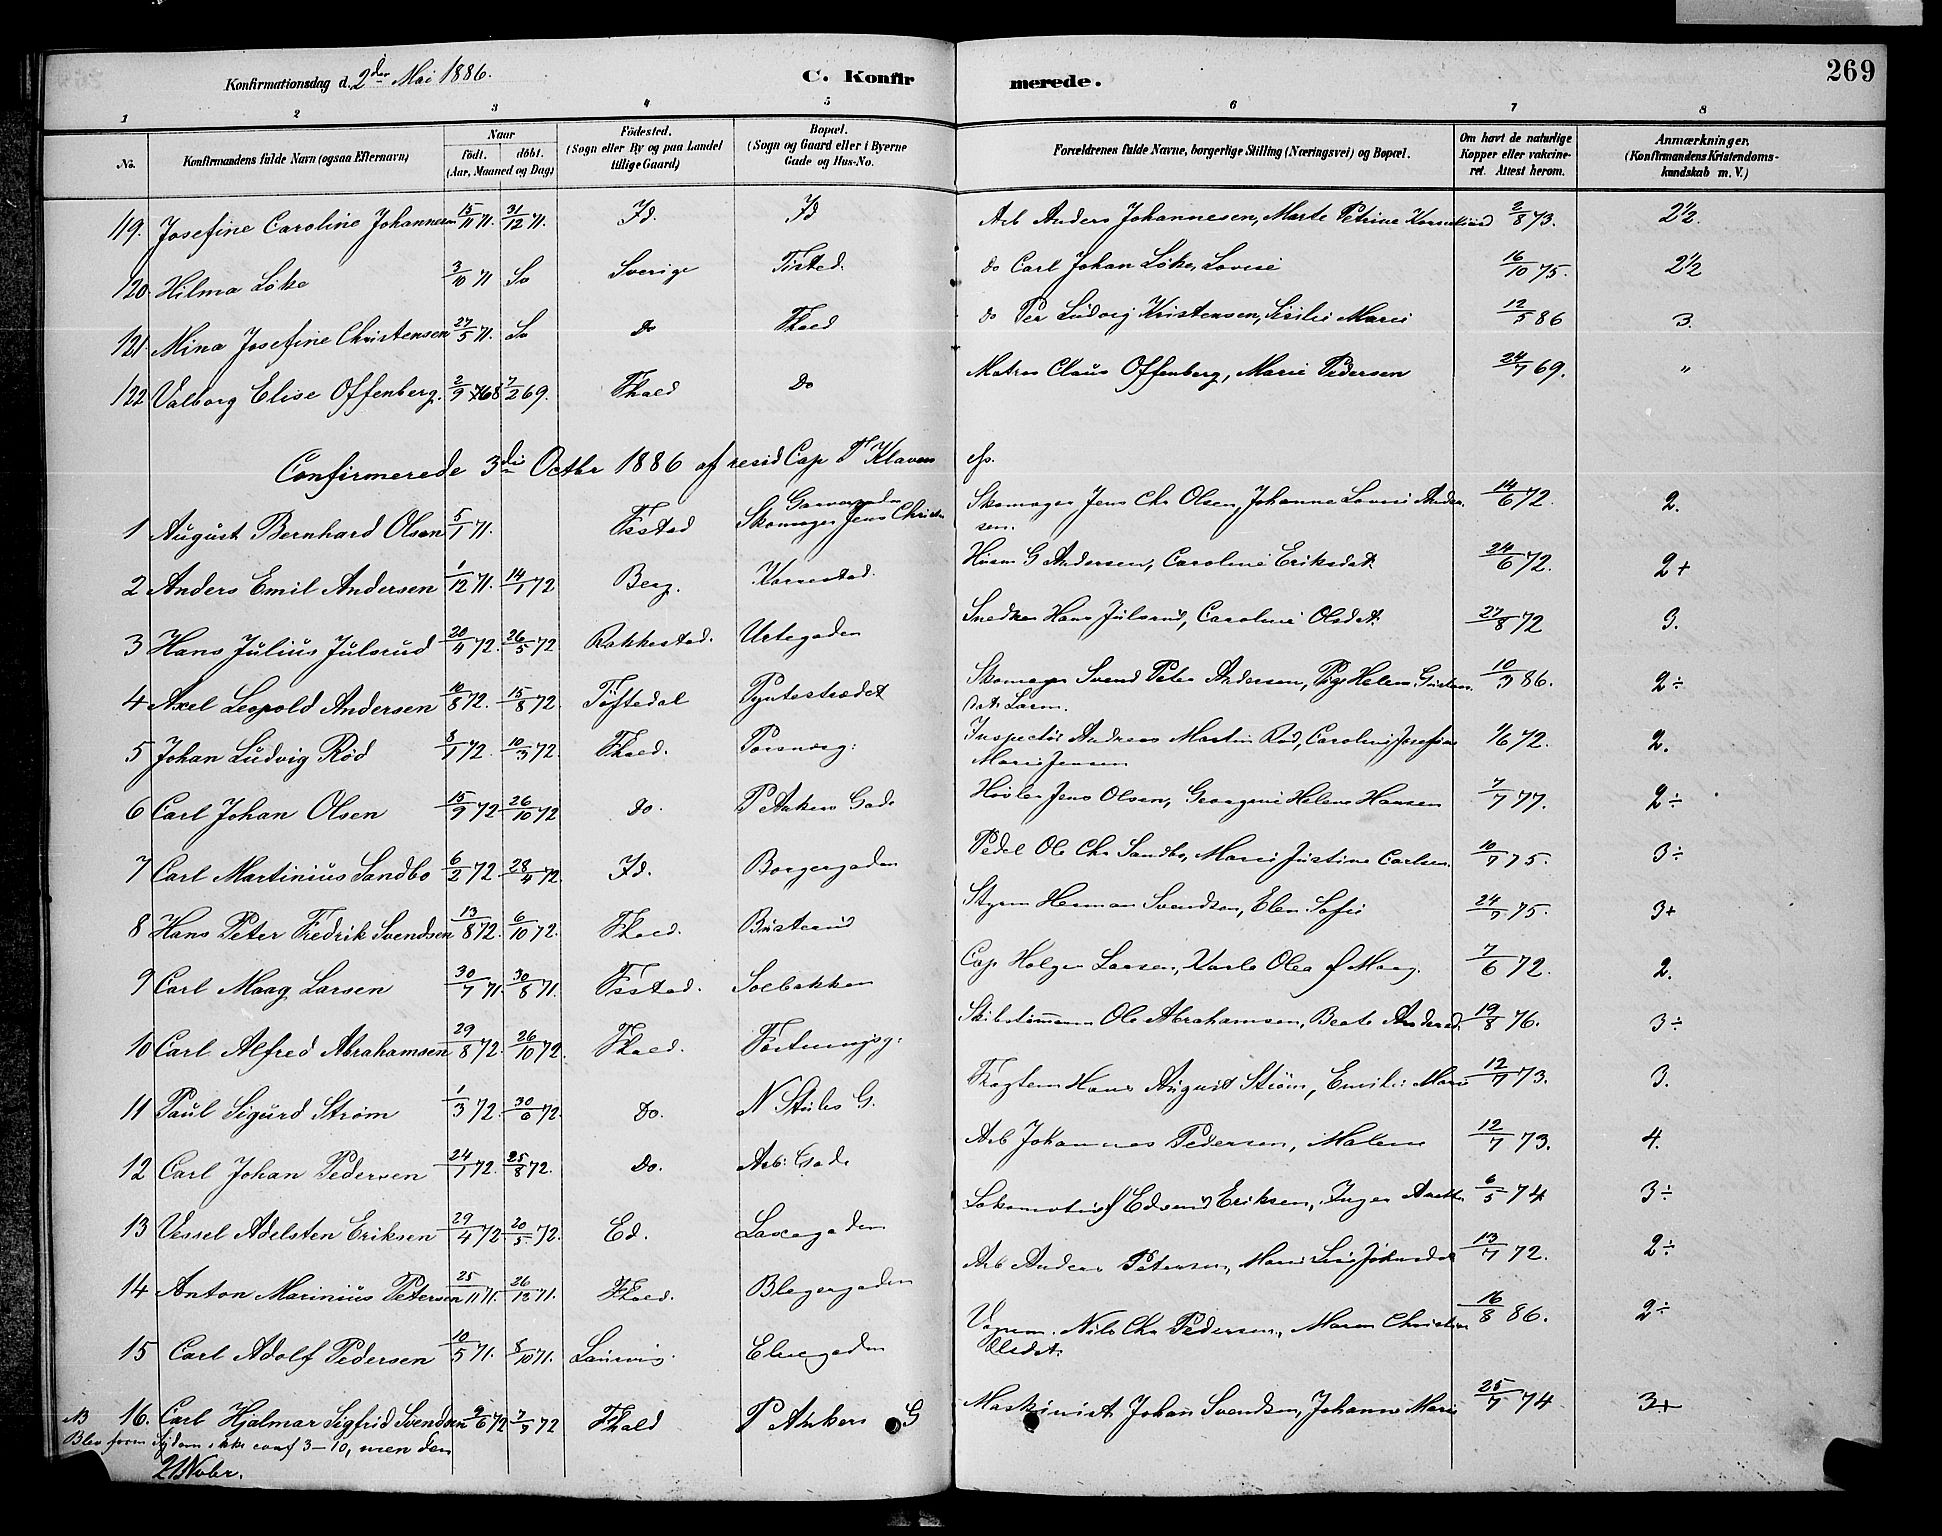 269
Konfirmationsdag d. 2den Mai 1886.
C. Konfirmerede.
1 2 3 4 5 6 7 8
No.
Konfirmandens fulde Navn (ogsaa Efternavn)
Naar
født. døbt.
(Aar, Maaned og Dag)
Fødested.
(Sogn eller By og paa Landet
tillige Gaard)
Bopæl.
(Sogn og Gaard eller i Byerne
Gade og Hus-No.
Forældrenes fulde Navne, borgerlige Stilling (Næringsvei) og Bopæl.
Om havt de naturlige
Kopper eller vakcine-
ret. Attest herom.
Anmærkninger,
(Konfirmandens Kristendoms-
kundskab m. V.)
119. Josefine Caroline Johannesen 15/11 71. 31/12 71. Id. Id Arb Anders Johannesen, Marte Petrine 2/8 73. 2 1/2.
120. Hilma Løke 3/10 71 Do Sverige Tisted. do Carl Johan Løke, Lovise 16/10 75. 2 1/2
121. Mina Josefine Christensen 27/5 71. Do do Fhald do Per Ludvig Kristensen, Sisilie Marie 12/5 86 3.
122 Valborg Elise Offenberg. 2/9 68 7/2 69. Fhald Do Matros Claus Offenberg, Marie Pedersen 24/7 69. "
Confirmerede 3die Octbr 1886 af resid Cap Th Klaveness.
1 August Bernhard Olsen 5/1 71. Tistad Skomager Jens Christ Skomager Jens Chr Olsen, Johanne Lovise Andersen. 14/6 72. 2.
2 Anders Emil Andersen 1/12 71. 14/1 72 Berg. Karrestad. Husm G Andersen, Caroline Eriksdat. 24/6 72. 2+
3 Hans Julius Julsrud 20/4 72. 26/5 72 Rakkestad. Urtegaden Snedker Hans Julsrud, Caroline Olsdat. 27/8 72 3.
4 Axel Leopold Andersen 10/8 72. 15/8 72. Töftedal Pyntestrædet Skomager Svend Peter Andersen, Pige Helene 10/3 86. 2÷
5 Johan Ludvig Röd 8/1 72. 10/3 72. Fhald. Porsnæsg: Inspectör Andreas Martin Röd, Caroline Josefine
Marie Jensen 1/6 72. 2.
6 Carl Johan Olsen 15/9 72 26/10 72 do. P Ankers Gade Høvler Jens Olsen, Georgine Helene Hansen 7/7 77. 2÷
7 Carl Martinius Sandbo 6/2 72. 28/4 72. Id. Borgergaden Pedel Ole Chr Sandbo, Marie Justine Carlsen. 10/7 75. 3÷
8 Hans Peter Fredrik Svendsen 13/8 72. 6/10 72. Fhald. Busterud Styrm Herman Svendsen, Elen Sofie 24/7 75. 3+
9 Carl Maag Larsen 30/7 71. 30/8 71. Tistad. Solbakken Cap Holger Larsen, Karla Olea f Maag. 7/6 72. 2.
10 Carl Alfred Abrahamsen 29/8 72. 26/10 72. Fhald. Fæstningsg. Skibstömmerm Ole Abrahamsen, Beate Andersd. 19/8 76. 3÷
11 Paul Sigurd Strøm 1/3 72. 72. Do. N Stubs G. Fragtem Hans August Strøm, Emilie Marie 12/7 73. 3.
12 Carl Johan Pedersen 24/1 72. 25/8 72. Do. Arb: Gade Arb Johannes Pedersen, Malene 12/7 73. 4.
13 Vessel Adelsten Eriksen 29/4 72 20/5 72. Ed. Laxegaden Lokomotivf Edvard Eriksen, Inger 6/5 74 3÷
14 Anton Marinius Petersen 25/11 71. 26/12 71. Fhald. Blegergaden Arb Anders Petersen, Maria Lise Johnsdat 13/7 72. 2÷
15 Carl Adolf Pedersen 10/5 71. 8/10 71. Laurvig. Elvegaden Vognm. Nils Chr Pedersen, Maren Christine
Olsdat. 16/8 86. 2÷
NB 16. Carl Hjalmar Sigfrid Svendsen 9/6 72 7/7 72 Fhald P Ankers G Maskinist Johan Svendsen, Johanne Marie 25/7 74 3+
Blev form Sygdom ikke conf 3-10, men den
21 Novbr.